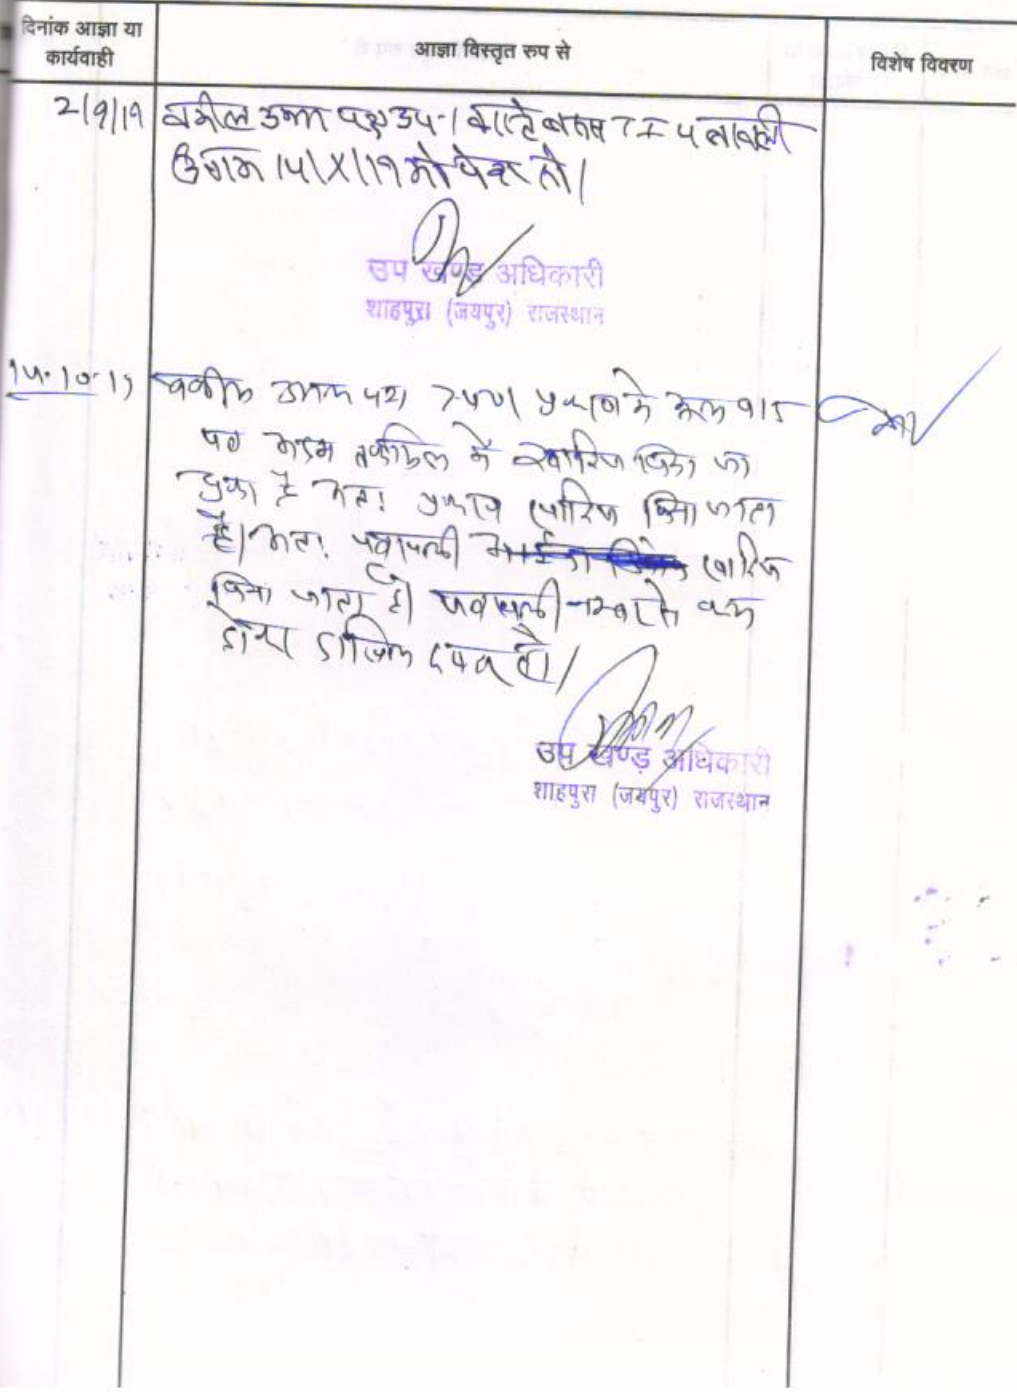 दिनांक आज्ञा या
कार्यवाही
आज्ञा विस्तृत रुप से
विशेष विवरण
2/9/19 वकील उभय पक्ष उप। वास्ते बहस TI पत्रावली
14/X/19 को पेश हो।
उप खण्ड अधिकारी
शाहपुरा (जयपुर) राजस्थान
14.10.19 वकील उभय पक्ष उप। प्रकरण में मूल वाद
पत्र अदम तकमील में खारिज किया जा
चुका है अतः प्रकरण खारिज किया जाता
है। अतः पत्रावली खारिज
किया जाता है। पत्रावली नम्बर से कम
होकर दाखिल दफ्तर हो।
उप खण्ड अधिकारी
शाहपुरा (जयपुर) राजस्थान